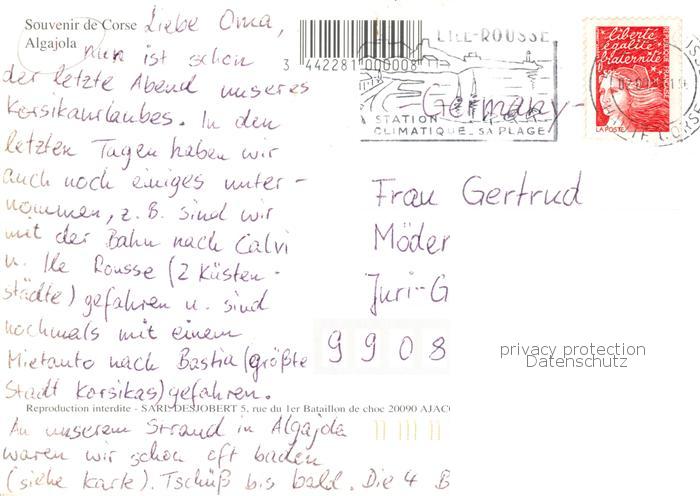 Souvenir de Corse
Algajola
Liebe Oma,
nun ist schon
der letzte Abend unseres
Korsikaurlaubes. In den
letzten Tagen haben wir
auch noch einiges unter-
nommen, z.B. sind wir
mit der Bahn nach Calvi
u. Ile Rousse (2 Küsten-
städte) gefahren u. sind
nochmals mit einem
Mietauto nach Bastia (größte
Stadt Korsikas) gefahren.
Reproduction interdite - SARL DESJOBERT 5, rue du 1er Bataillon de choc 20090 AJAC
An unserem Strand in Algajola
waren wir schon oft baden
(siehe Karte). Tschüß bis bald. Die 4 B
3 442281 000008
L'ILE-ROUSSE
STATION
CLIMATIQUE_SA PLAGE
liberté
égalité
fraternité
RÉPUBLIQUE FRANÇAISE
LA POSTE
- Germany -
Frau Gertrud
Möder
Juri-G
9908
privacy protection
Datenschutz